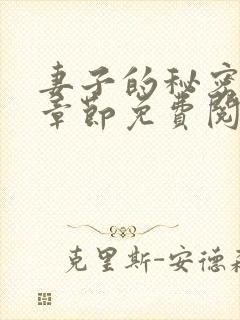 妻子的秘密
章节免费阅
克里斯-安德森